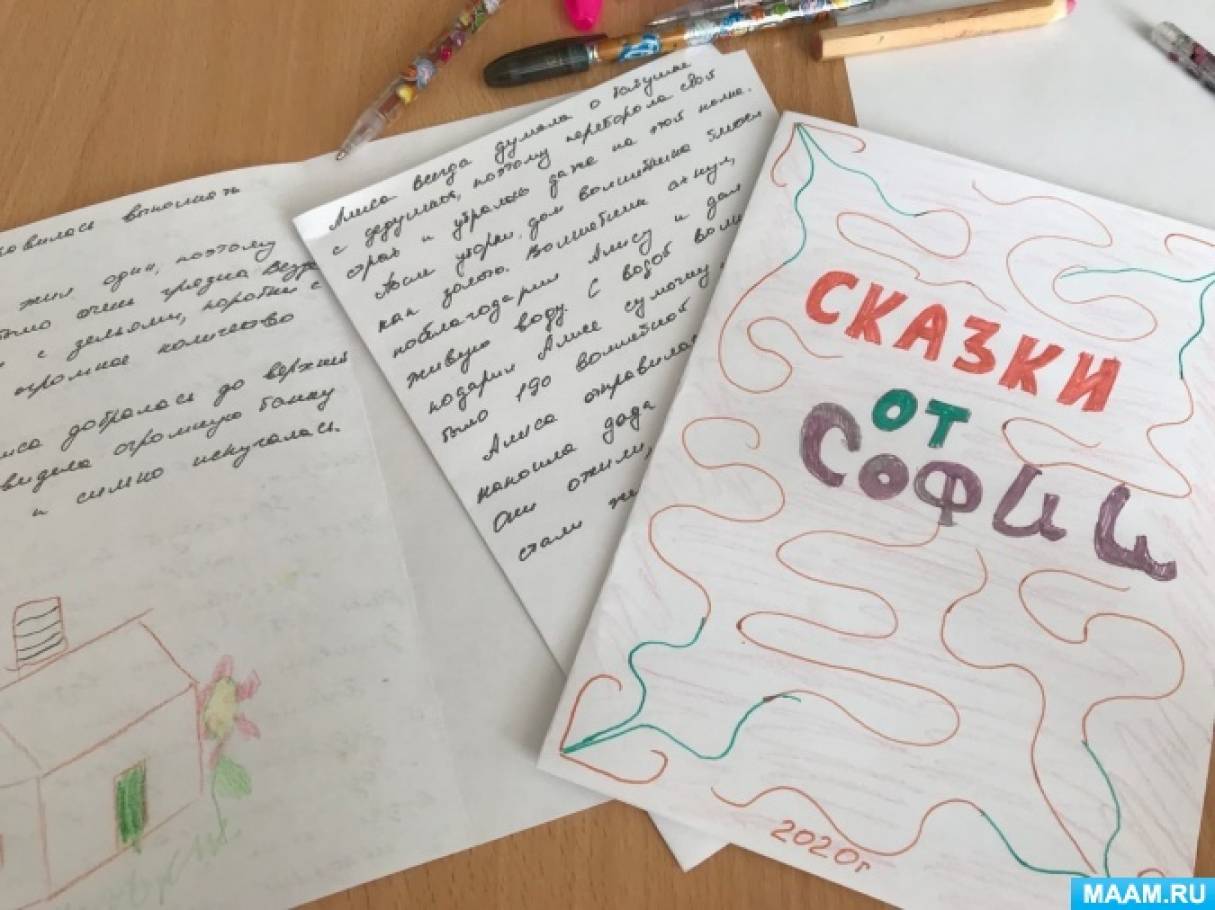 вилась выполнять
жил один, поэтому
было очень грязно везде
с зельями, коробки с
огромное количество
добралась до верхней
видела огромную банку
и сильно испугалась.
Алиса всегда думала о бабушке
с дедушкой, поэтому переборола свой
страх и убралась даже на этой полке.
После уборки, дом волшебника
как золото. Волшебник ахнул,
поблагодарил Алису и дал
живую воду. С водой
подарил Алисе сумочку
было 190
Алиса отправилась
напоила деда
Они ожили,
стали
СКАЗКИ
ОТ
СОФИИ
2020г
MAAM.RU